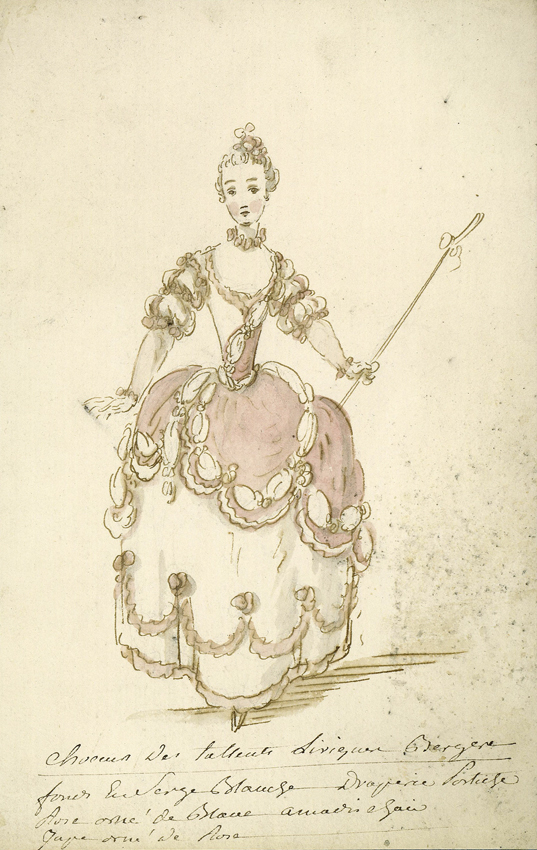 Choeur des tallents liriques Bergere
fonds en Serge Blanche Draperie postiche
Rose orné de Blanc amadis &
Jupe orné de Rose